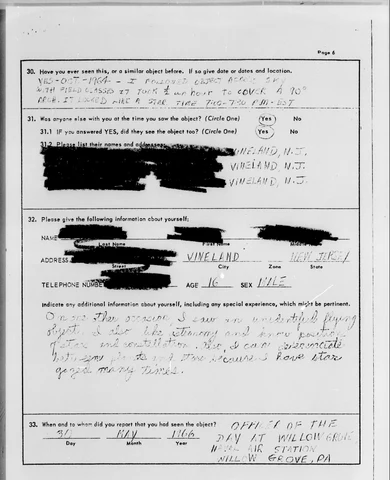 Page 6
30. Have you ever seen this, or a similar object before. If so give date or dates and location.
YES - OCT - 1964 - I FOLLOWED OBJECT ACROSS SKY
WITH FIELD GLASSES IT TOOK ½ an HOUR TO COVER A 90°
ARCH. IT LOOKED LIKE A STAR TIME 7:00-7:30 P.M. EST
31. Was anyone else with you at the time you saw the object? (Circle One) Yes No
31.1 IF you answered YES, did they see the object too? (Circle One) Yes No
31.2 Please list their names and addresses:
VINELAND, N.J.
VINELAND, N.J.
VINELAND, N.J.
32. Please give the following information about yourself:
NAME
Last Name First Name Middle Name
ADDRESS VINELAND NEW JERSEY
Street City Zone State
TELEPHONE NUMBER AGE 16 SEX MALE
Indicate any additional information about yourself, including any special experience, which might be pertinent.
On another occasion I saw an unidentified flying
object. I also like astronomy and know position
of stars and constellations. Also I can differentiate
between planets and stars because I have star
gazed many times.
33. When and to whom did you report that you had seen the object?
31 MAY 1966
Day Month Year
OFFICER OF THE
DAY AT WILLOW GROVE
NAVAL AIR STATION
WILLOW GROVE, PA